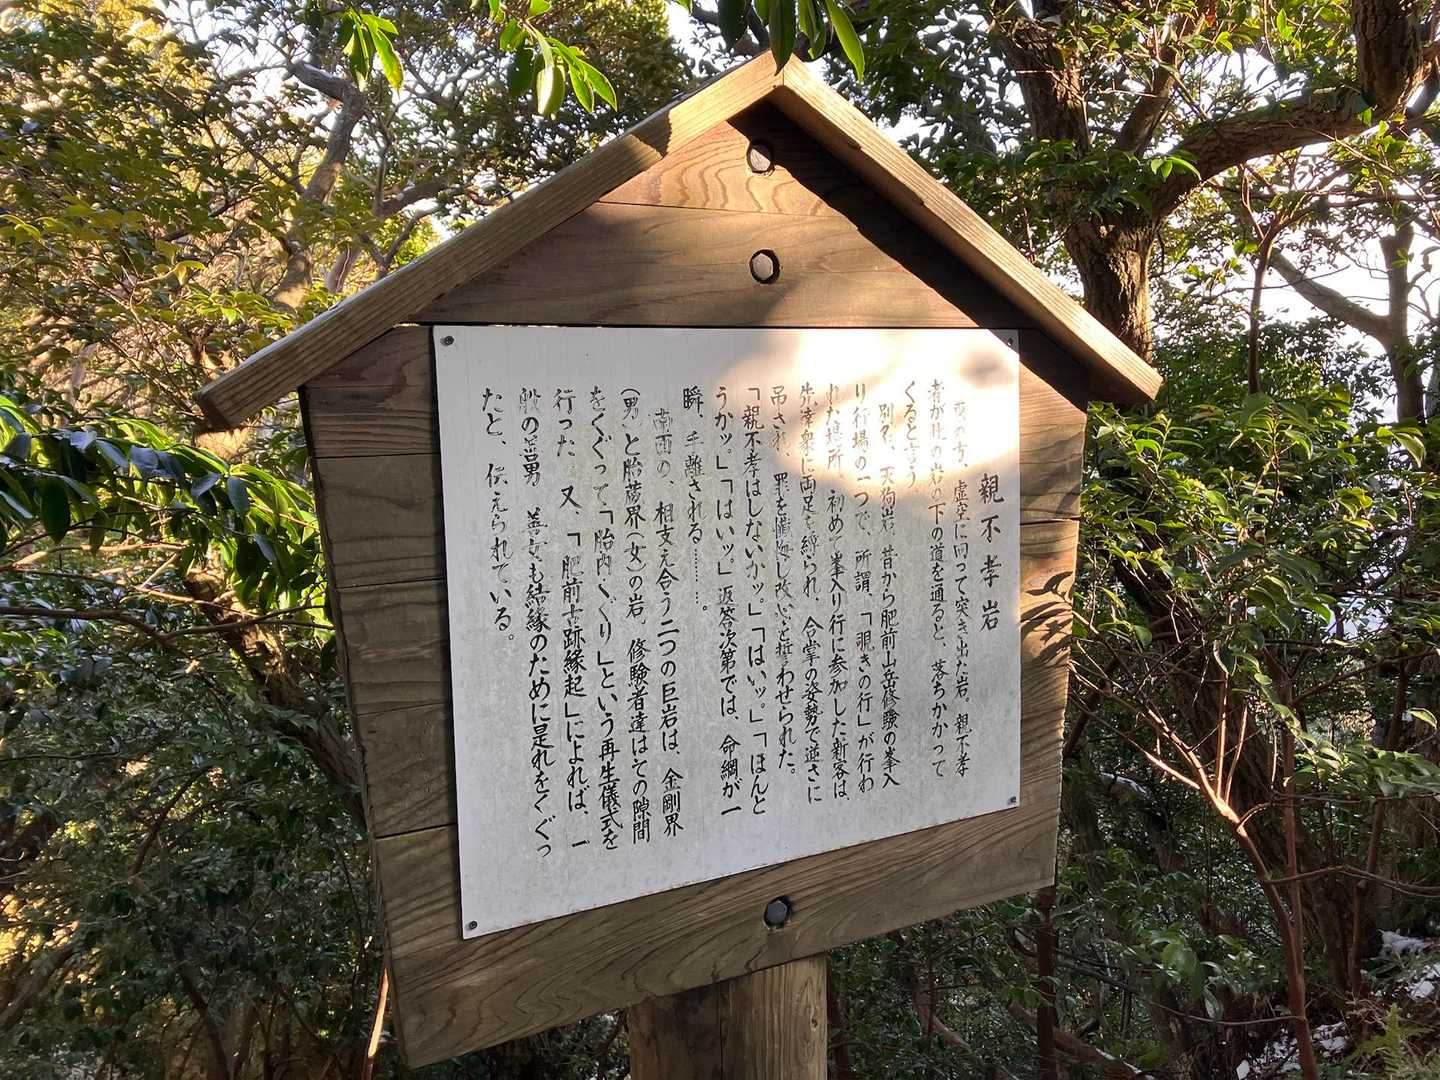 親不孝岩
の方、虚空に向って突き出た岩。親不孝
者が此の岩の下の道を通ると、落ちかかって
くると言う。
別名、天狗岩。昔から肥前山岳修験の峯入
り行場の一つで、所謂、「覗きの行」が行わ
れた場所。初めて峯入り行に参加した新客は、
先達衆に両足を縛られ、合掌の姿勢で逆さに
吊され、罪を懺悔し改心を誓わせられた。
「親不孝はしないかッ」「はいッ。」「ほんと
うかッ。」「はいッ」返答次第では、命綱が一
瞬、手離される………。
南面の、相支え合う二つの巨岩は、金剛界
(男)と胎蔵界(女)の岩。修験者達はこの隙間
をくぐって「胎内くぐり」という再生儀式を
行った。又、「肥前古跡縁起」によれば、一
般の善男 善女も結縁のために是れをくぐっ
たと、伝えられている。